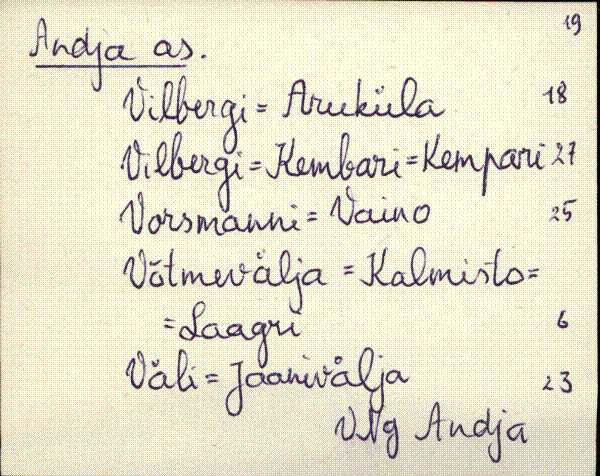 19
Andja as.
Vilbergi = Aruküla 18
Vilbergi = Kembari = Kempari 27
Vorsmanni = Vaino 25
Võtmevälja = Kalmisto =
= Laagri 6
Väli = Jaanivälja 23
VNg Andja